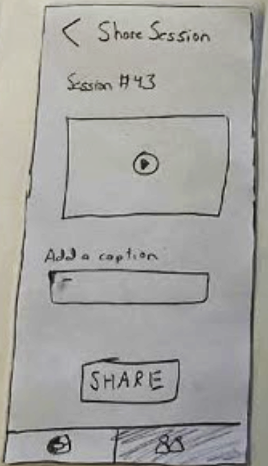 < Share Session
Session #43
Add a caption
SHARE